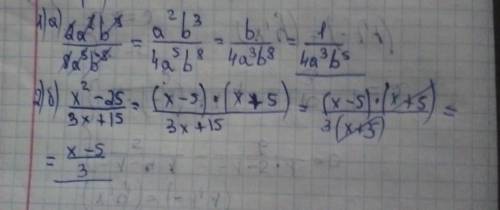 1) а) 2a²b³/8a⁵b⁸ = a²b³/4a⁵b⁸ = b/4a³b⁸ = 1/4a³b⁵
2) б) x²-25/3x+15 = (x-5)·(x+5)/3x+15 = (x-5)·(x+5)/3(x+5) =
= x-5/3